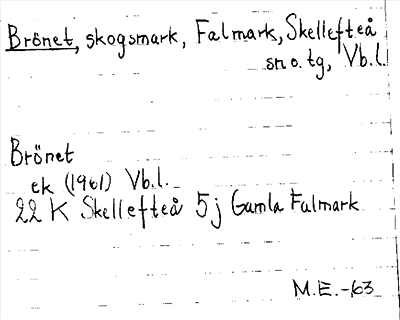 Brönet, skogsmark, Falmark, Skellefteå
sn o. tg, Vb.l.
Brönet
ek (1961) Vb.l.
22 K Skellefteå 5j Gamla Falmark
M.E.-63